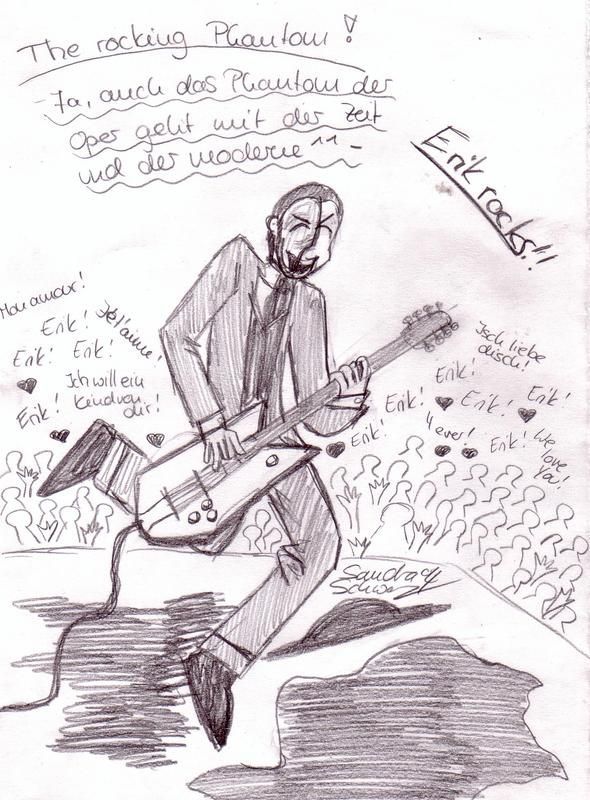 The rocking Phantom!
Ja, auch das Phantom der
Oper geht mit der Zeit
und der moderne ^^
Erik rocks!!
Mon amour!
Erik! Je t'aime!
Erik! Erik!
Ich will ein
Kind von
dir!
Erik!
Isch liebe
disch!
Erik!
Erik! Erik! Erik!
4 ever!
Erik! Erik!
We
love
You!
Sandra